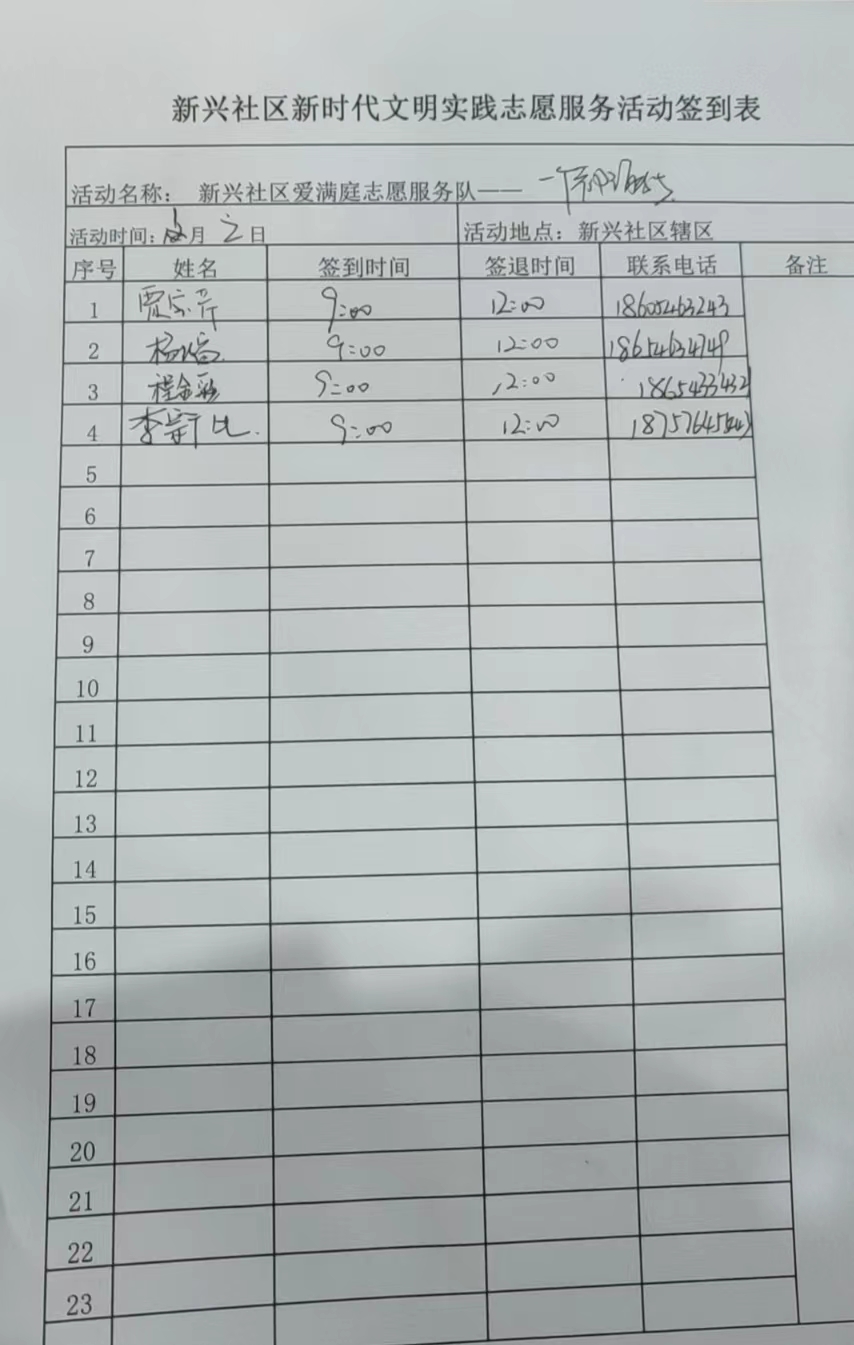 新兴社区新时代文明实践志愿服务活动签到表
活动名称： 新兴社区爱满庭志愿服务队——
活动时间： 月 日 活动地点：新兴社区辖区
序号 姓名 签到时间 签退时间 联系电话 备注
1 9:00 12:00 18605463243
2 9:00 12:00 18654634749
3 程金彩 9:00 12:00
4 9:00 12:00
5
6
7
8
9
10
11
12
13
14
15
16
17
18
19
20
21
22
23